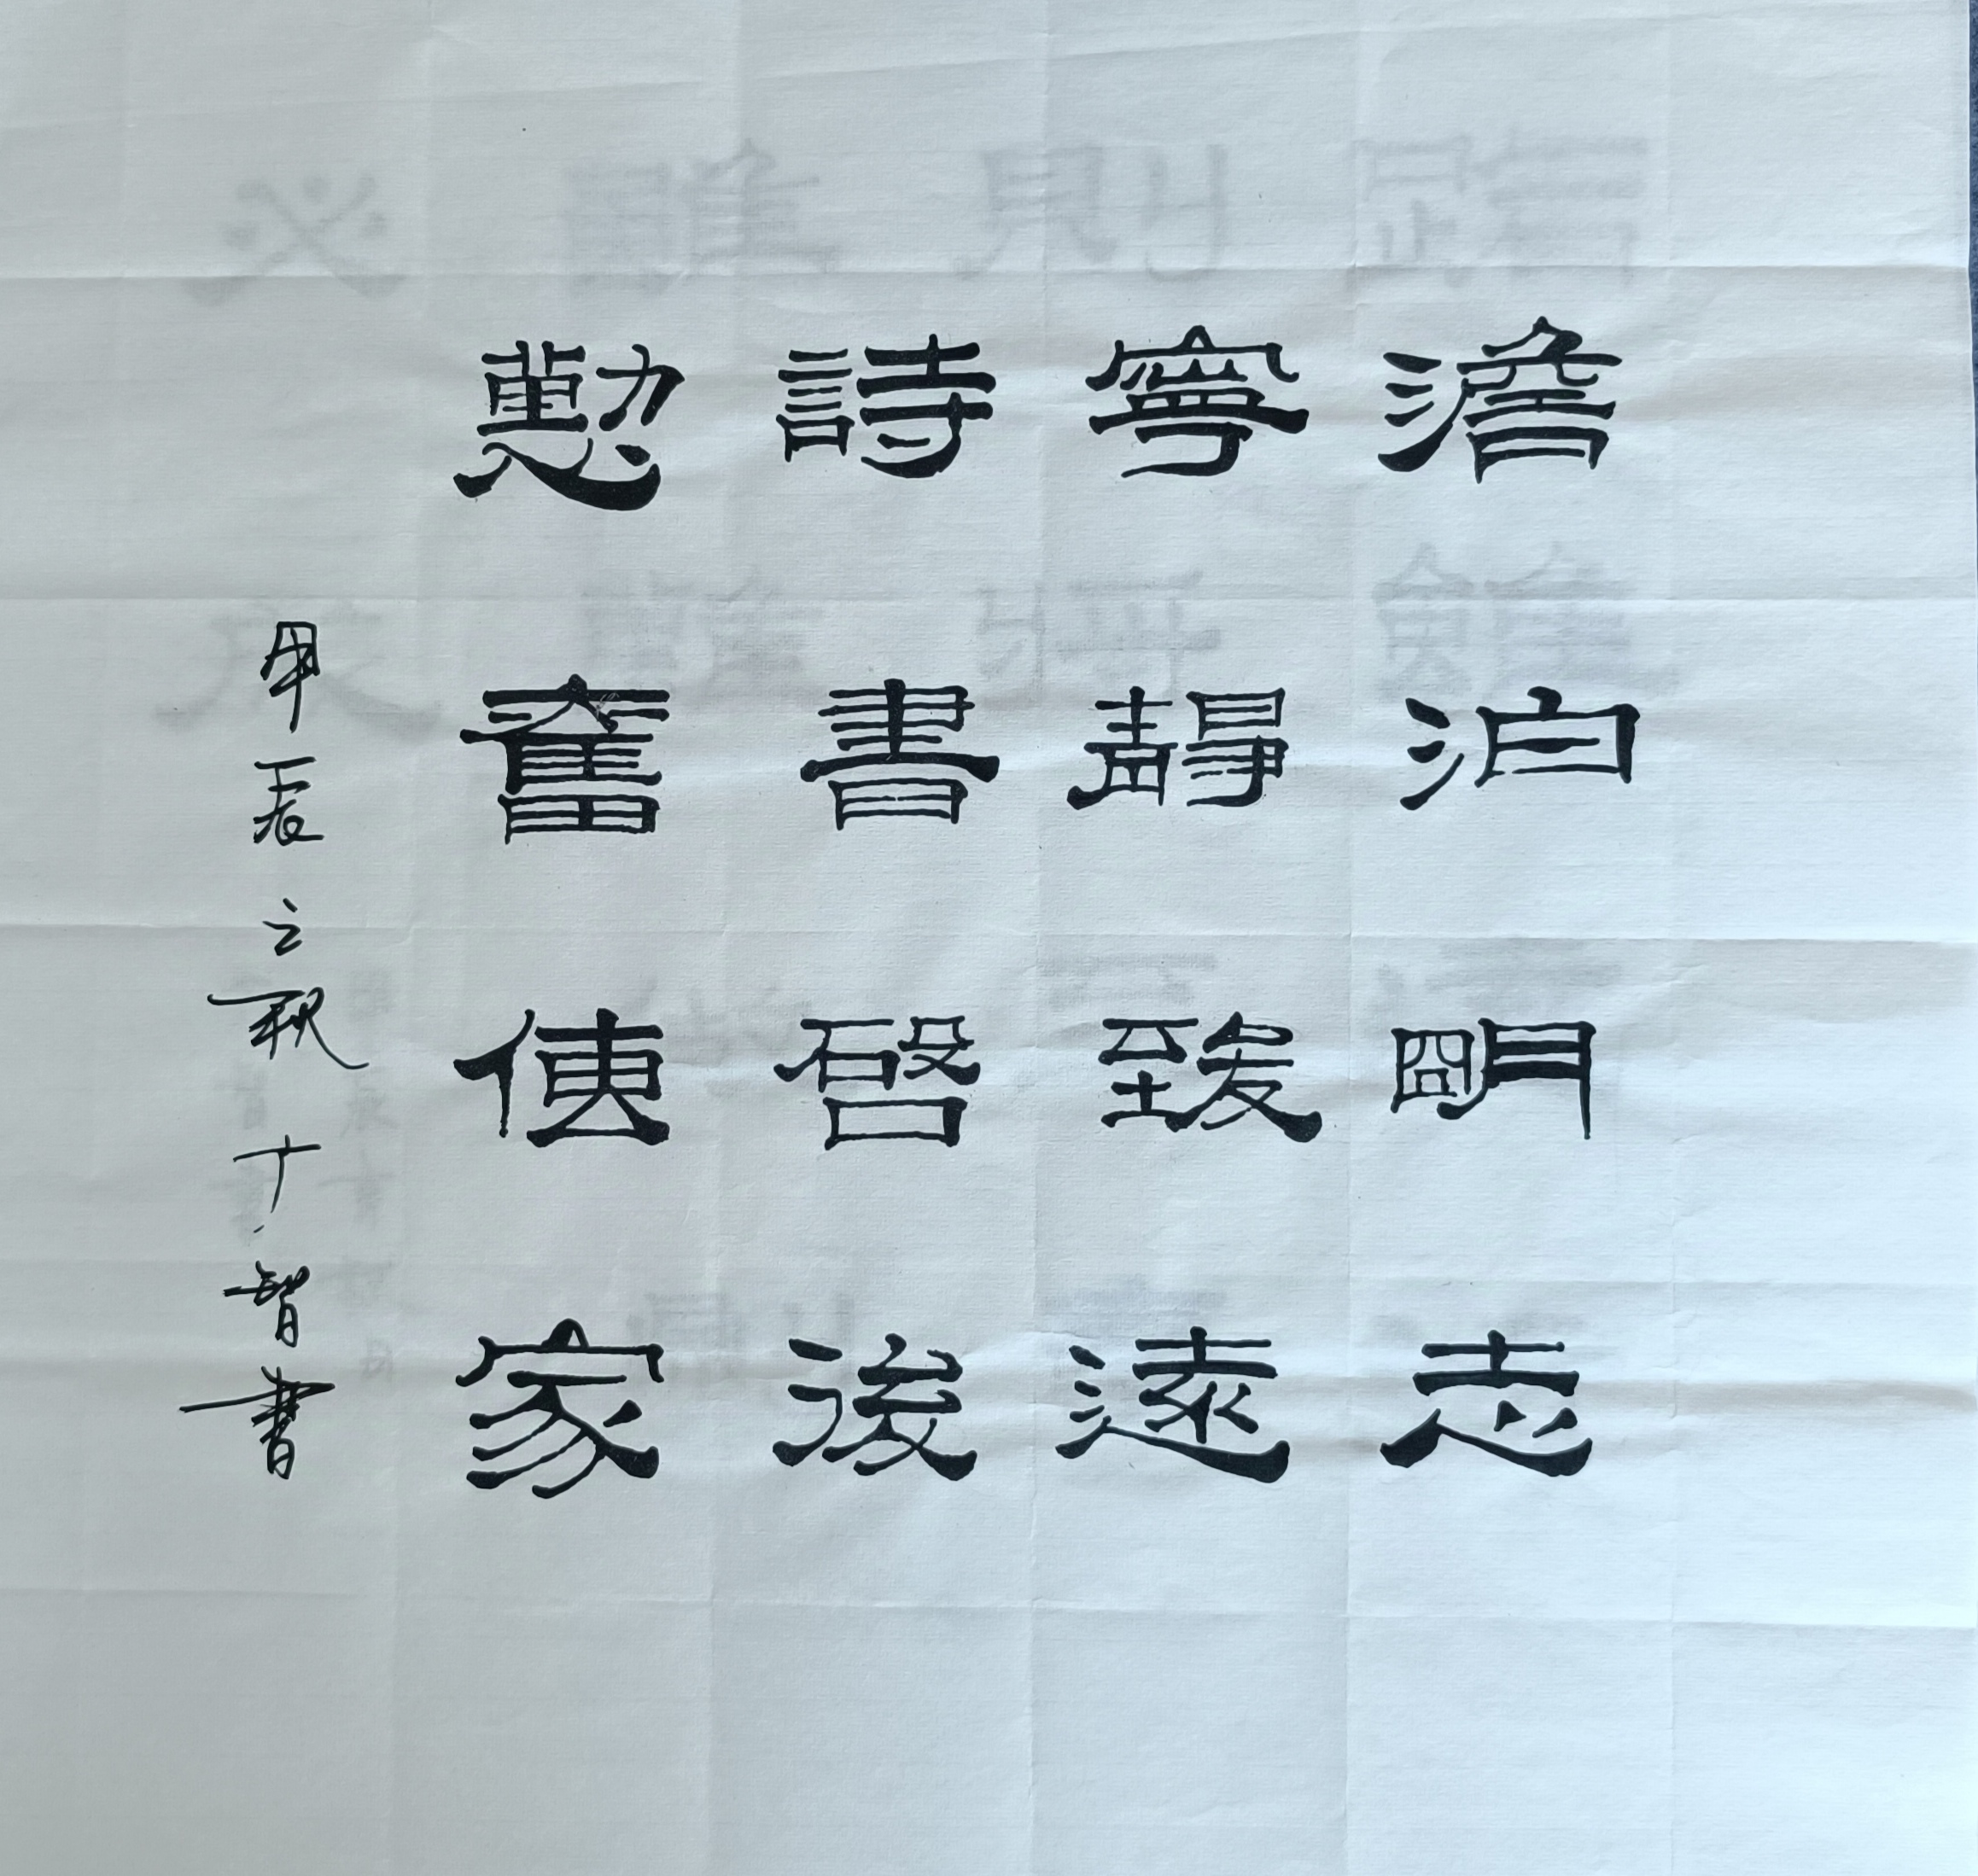 澹泊明志
寧靜致遠
詩書啓後
懃奮傳家
甲辰之秋 十智書